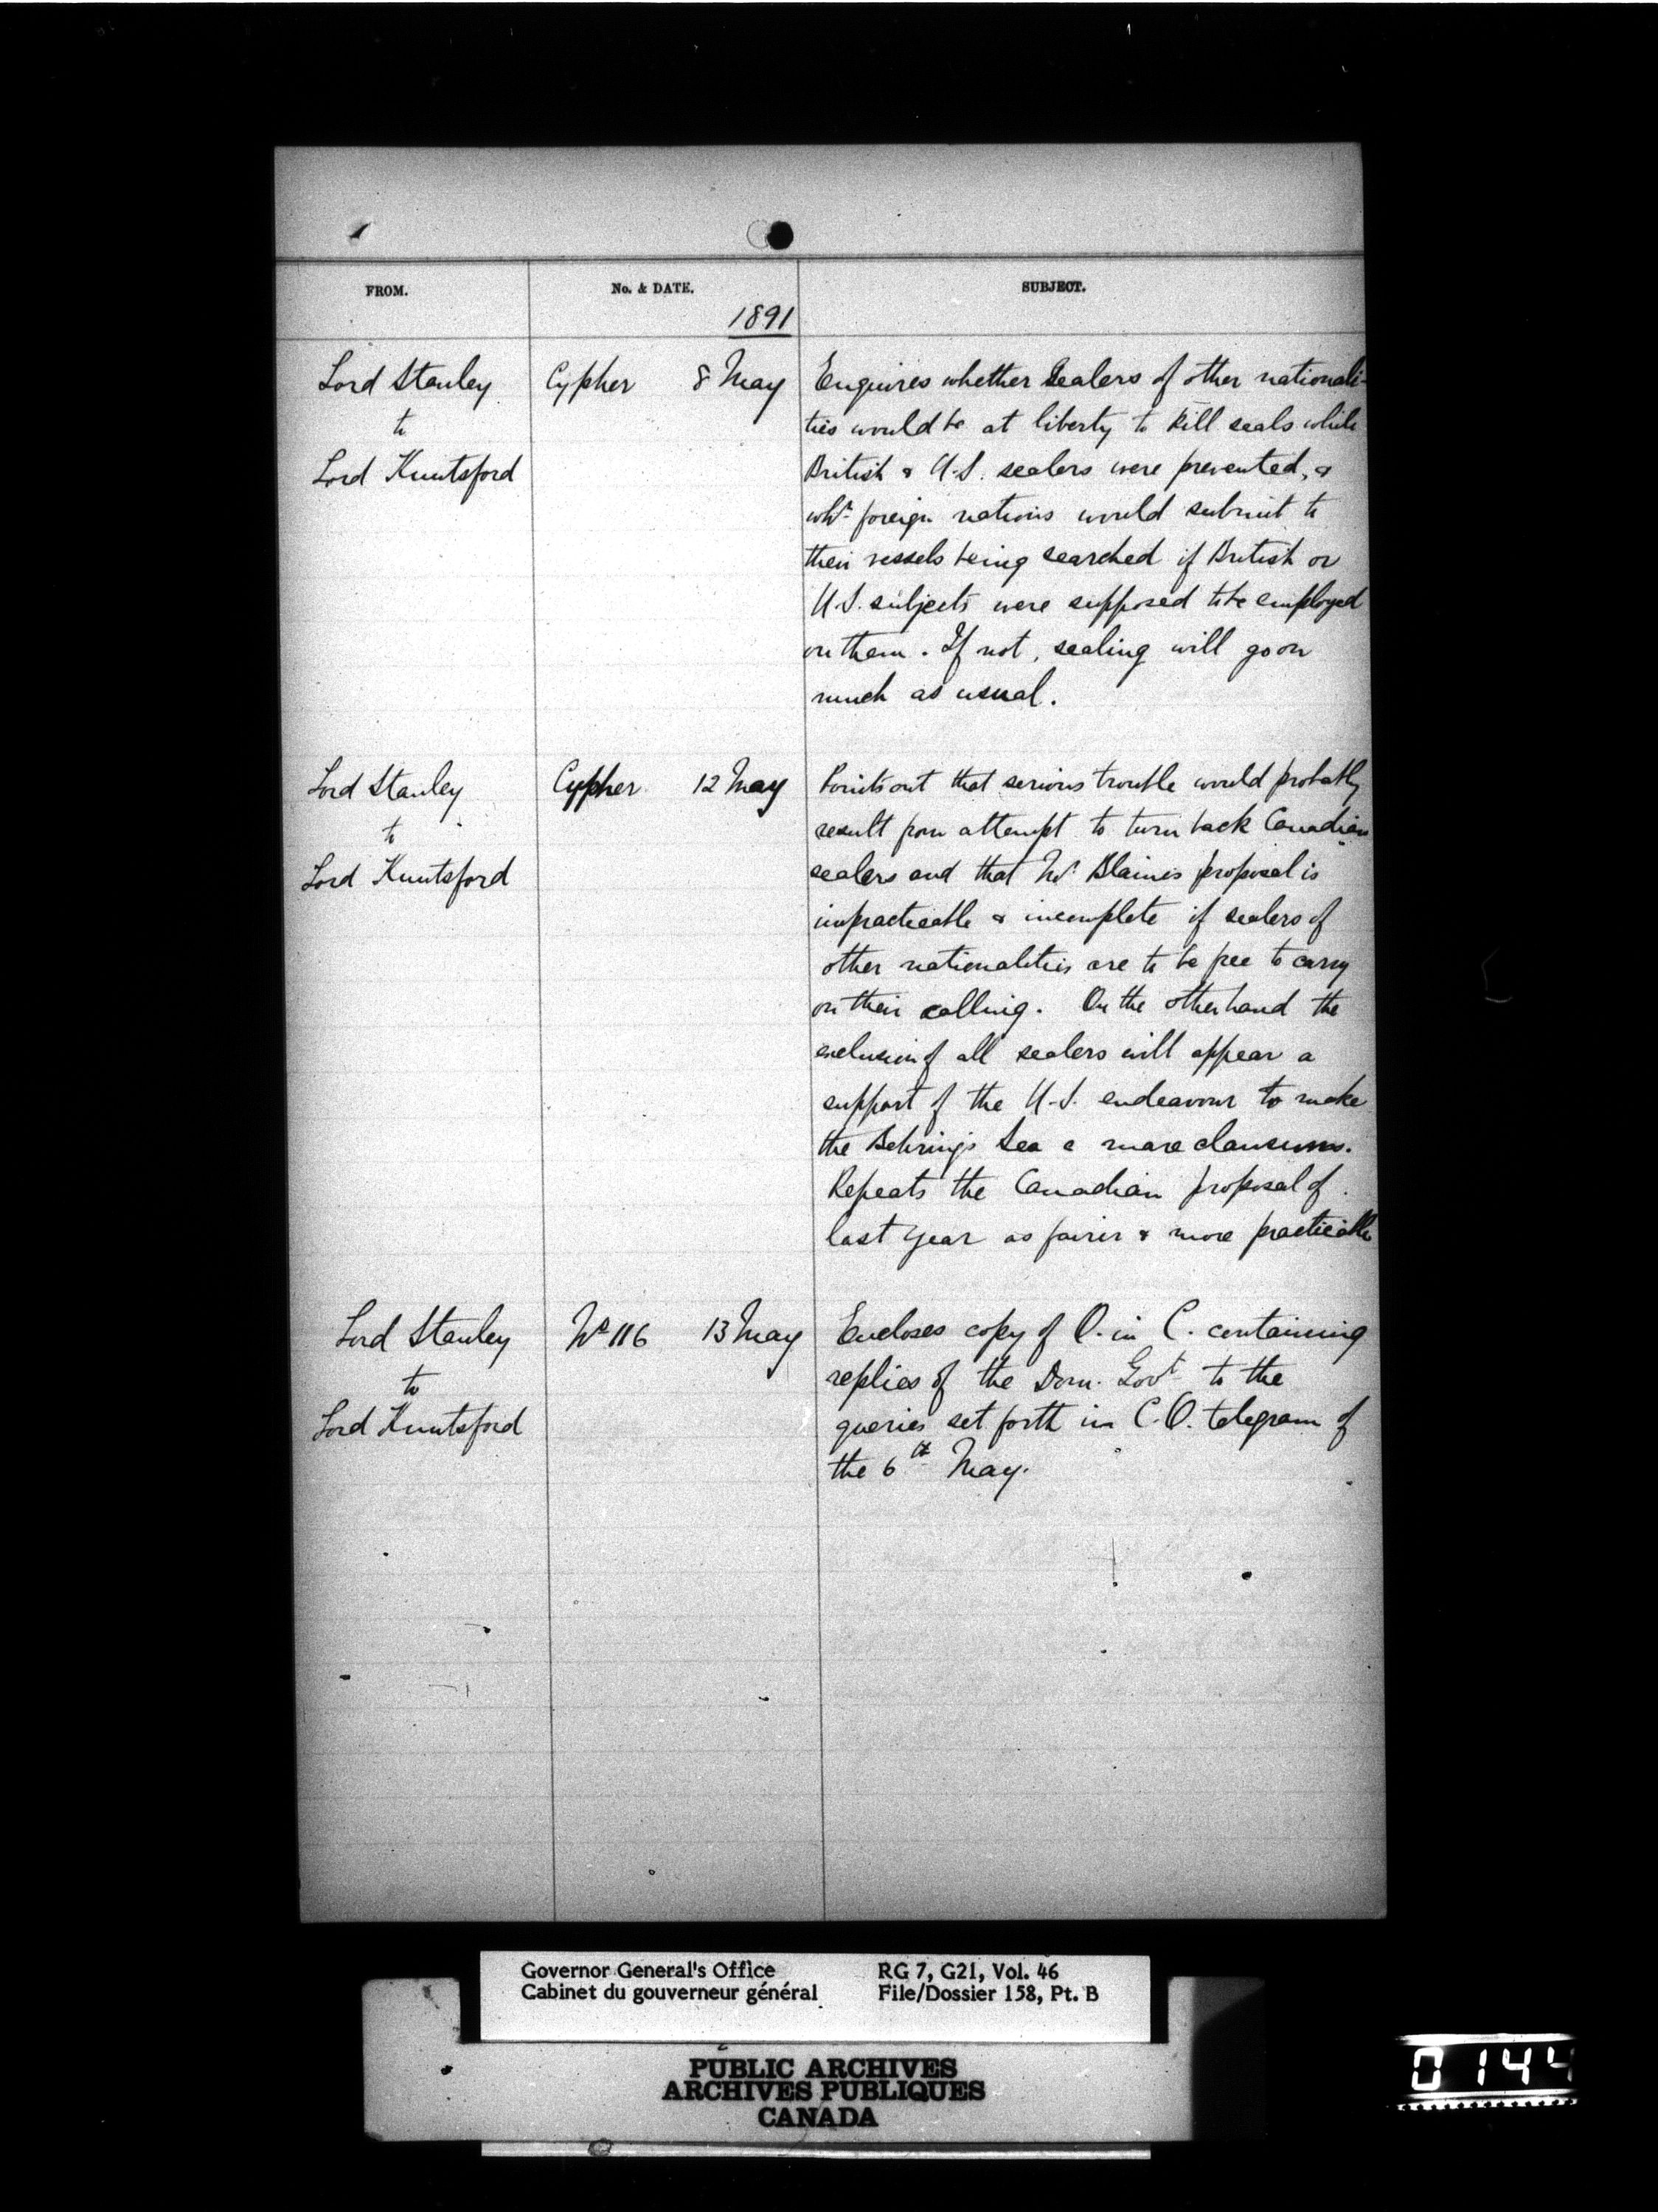 FROM. No. & DATE. SUBJECT.
1891
Lord Stanley Cypher 8 May Enquires whether Sealers of other nationali-
to ties would be at liberty to kill seals while
Lord Knutsford British & U.S. sealers were prevented, &
whr. foreign nations would submit to
their vessels being searched if British or
U.S. subjects were supposed to be employed
on them. If not, sealing will go on
much as usual.
Lord Stanley Cypher 12 May Points out that serious trouble would probably
to result from attempt to turn back Canadian
Lord Knutsford sealers and that Mr. Blaine's proposal is
impracticable & incomplete if sealers of
other nationalities are to be free to carry
on their calling. On the other hand the
exclusion of all sealers will appear a
support of the U.S. endeavour to make
the Behring's Sea a mare clausum.
Repeats the Canadian proposal of
last year as fairer & more practicable
Lord Stanley No 116 13 May Encloses copy of O. in C. containing
to replies of the Dom. Govt to the
Lord Knutsford queries set forth in C.O. telegram of
the 6th May.
Governor General's Office RG 7, G21, Vol. 46
Cabinet du gouverneur général File/Dossier 158, Pt. B
PUBLIC ARCHIVES
ARCHIVES PUBLIQUES
CANADA
0144